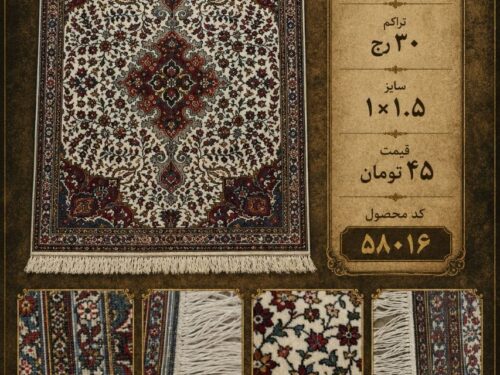 تراکم
۳۰ رج
سایز
۱×۱.۵
قیمت
۴۵ تومان
کد محصول
۵۸۰۱۶